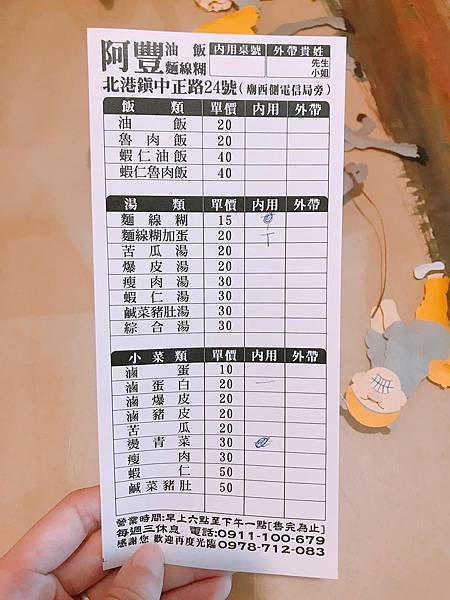 阿豐 油飯 麵線糊 內用桌號 外帶貴姓
先生
小姐
北港鎮中正路24號(廟西側電信局旁)
飯類 單價 內用 外帶
油飯 20
魯肉飯 20
蝦仁油飯 40
蝦仁魯肉飯 40
湯類 單價 內用 外帶
麵線糊 15
麵線糊加蛋 20 丅
苦瓜湯 20
爆皮湯 20
瘦肉湯 30
蝦仁湯 30
鹹菜豬肚湯 30
綜合湯 30
小菜類 單價 內用 外帶
滷蛋 10
滷蛋白 20 一
滷爆皮 20
滷豬皮 20
苦瓜 20
燙青菜 30
瘦肉 30
蝦仁 50
鹹菜豬肚 50
營業時間:早上六點至下午一點[售完為止]
每週三休息 電話:0911-100-679
感謝您 歡迎再度光臨 0978-712-083